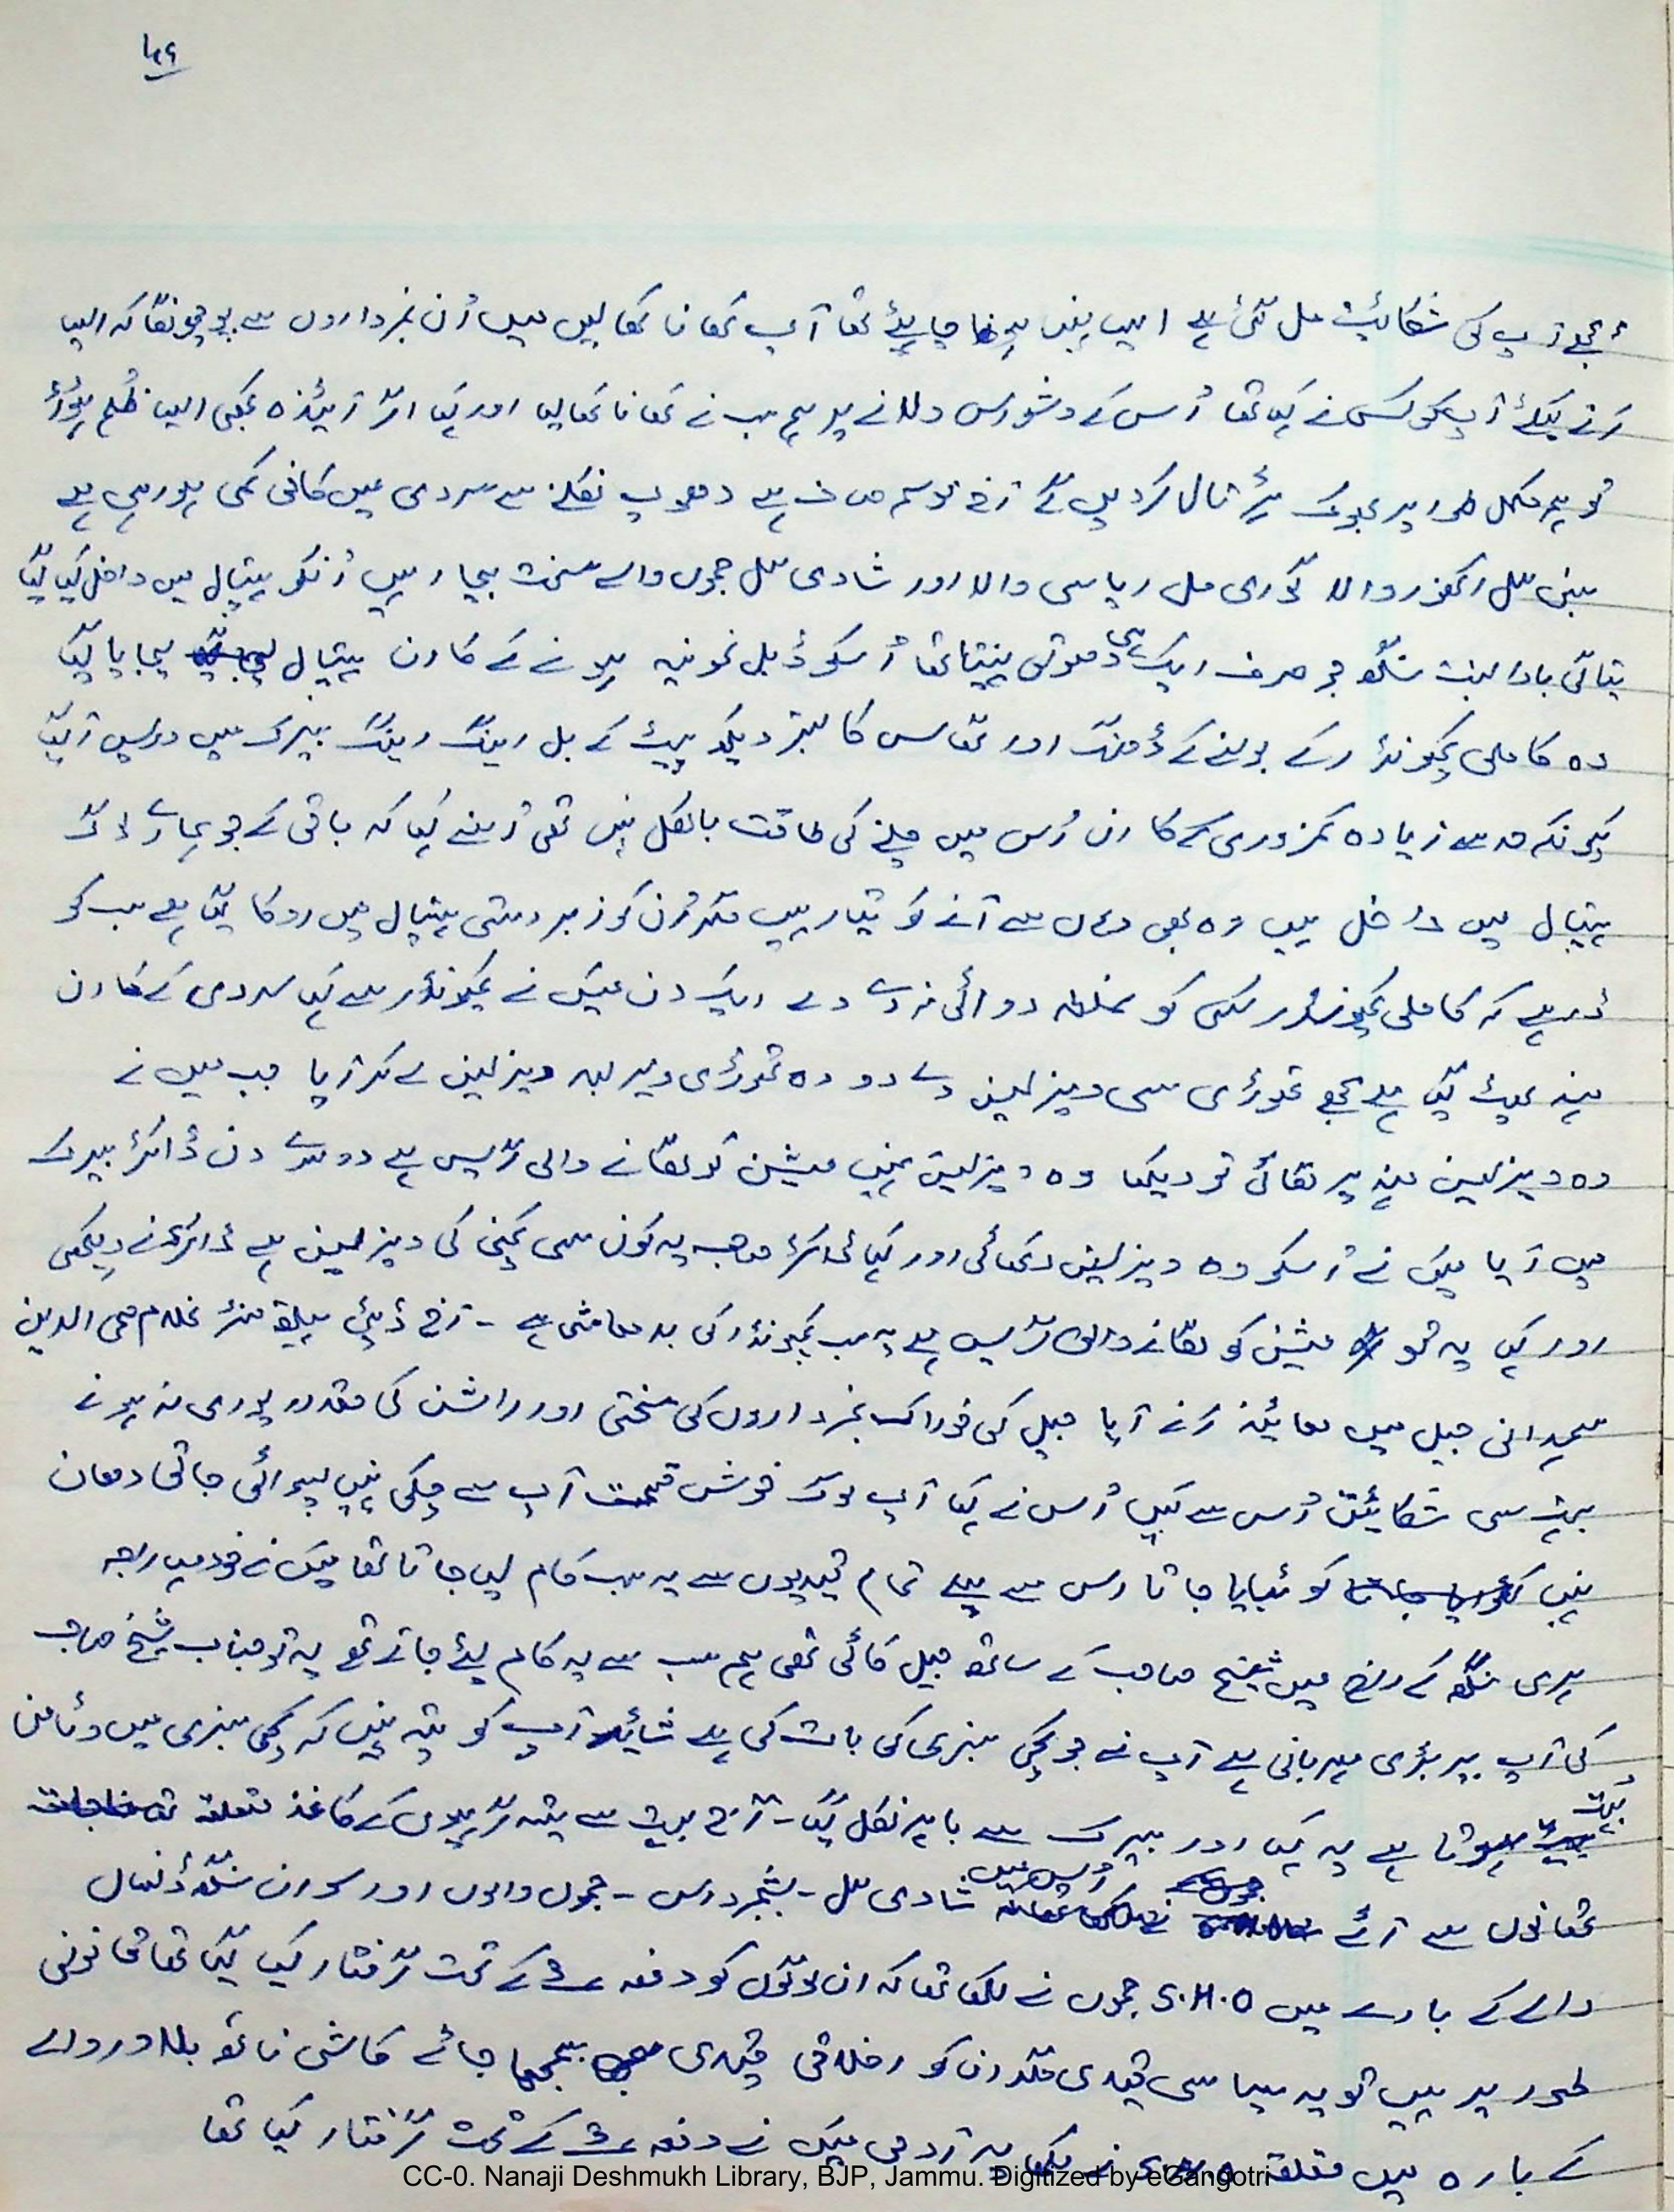 ۱۴۶
مجھے آپ کی شکائیت مل گئی ہے ایسا نہیں ہونا چاہیئے تھا آپ کھانا کھا لیں میں اُن نمبرداروں سے پوچھونگا کہ ایسا
کرنے کیلئے آپکو کس نے کہا تھا اُس کے وشواس دلانے پر ہم سب نے کھانا کھا لیا اور کہا اگر آئیندہ کبھی ایسا ظلم ہوا
تو ہم مکمل طور پر بھوک ہڑتال کر دیں گے آج موسم صاف ہے دھوپ نکلنے سے سردی میں کافی کمی ہو رہی ہے
بنسی لال اکھنور والا گوری مل ریاسی والا اور شادی لال جموں والے سخت بیمار ہیں اُنکو ہسپتال میں داخل کیا گیا
تیاگی بابا بنت سنگھ جو صرف ایک ہی دھوتی پہنتا تھا اُسکو ڈبل نمونیہ ہونے کے کارن ہسپتال لیجایا گیا
وہ کاملی کمپونڈر کے بولنے کے ڈھنگ اور اس کا بستر دیکھ پیٹ کے بل رینگ رینگ بیرک میں واپس آ گیا
کیونکہ حد سے زیادہ کمزوری کے کارن اُس میں چلنے کی طاقت بالکل نہیں تھی اُسنے کہا کہ باقی کے جو ہمارے لوگ
ہسپتال میں داخل ہیں وہ بھی وہاں سے آنے کو تیار ہیں مگر اُن کو زبردستی ہسپتال میں روکا گیا ہے سب کو
ڈر ہے کہ کاملی کمپونڈر کسی کو غلط دوائی نہ دے دے ایک دن میں نے کمپونڈر سے کہا سردی کے کارن
منہ پھٹ گیا ہے مجھے تھوڑی سی ویزلین دے دو وہ تھوڑی دیر بعد ویزلین لے کر آیا جب میں نے
وہ ویزلین منہ پر لگائی تو دیکھا وہ ویزلین نہیں مشین کو لگانے والی گریس ہے دوسرے دن ڈاکٹر بیرک
میں آیا میں نے اُسکو وہ ویزلین دکھائی اور کہا ڈاکٹر صاحب یہ کون سی کمپنی کی ویزلین ہے ڈاکٹر نے دیکھی
اور کہا یہ تو مشین کو لگانے والی گریس ہے یہ سب کمپونڈر کی بدمعاشی ہے - آج ڈپٹی ہیلتھ منسٹر غلام محی الدین
ہمدانی جیل میں معائینہ کرنے آیا جیل کی خوراک نمبرداروں کی سختی اور راشن کی مقدار پوری نہ ہونے
بہت سی شکائیتیں اُس سے کیں اُس نے کہا آپ لوگ خوش قسمت آپ سے چکی نہیں پسوائی جاتی دھان
نہیں کوٹیایا جاتا اس سے پہلے تمام قیدیوں سے یہ سب کام لیا جاتا تھا میں نے خود مہاراجہ
ہری سنگھ کے راج میں شیخ صاحب کے ساتھ جیل کاٹی تھی ہم سب سے یہ کام لئے جاتے تھے یہ تو جناب شیخ صاحب
کی آپ پر بڑی مہربانی ہے آپ نے جو کچی سبزی کی بات کی ہے شائید آپ کو پتہ نہیں کہ کچی سبزی میں وٹامن
بہت ہوتا ہے یہ کہا اور بیرک سے باہر نکل گیا - آج بہت سے ستیہ گرہیوں کے کاغذ متعلقہ
تھانوں سے آئے اُس میں شادی لال - جموں والوں اور سورن سنگھ ڈنسال
والے کے بارے میں S.H.O جموں نے لکھا تھا کہ ان لوگوں کو دفعہ ۳ کے تحت گرفتار کیا گیا تھا قانونی
طور پر ہیں تو یہ سیاسی قیدی مگر ان کو اخلاقی قیدی سمجھا جائے کاشی ناتھ بلاور والے
کے بارہ میں متعلقہ S.H.O نے لکھا یہ آدمی میں نے دفعہ ۳ کے تحت گرفتار کیا تھا
CC-0. Nanaji Deshmukh Library, BJP, Jammu. Digitized by eGangotri